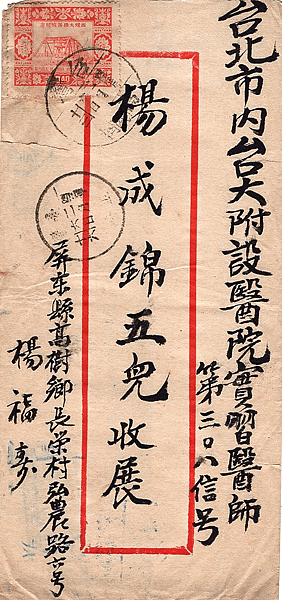 台北市内台大附設醫院實習醫師
第三〇八信号
楊成錦五兜收展
屏東縣高樹鄉長榮村弘農路六号
楊福寿